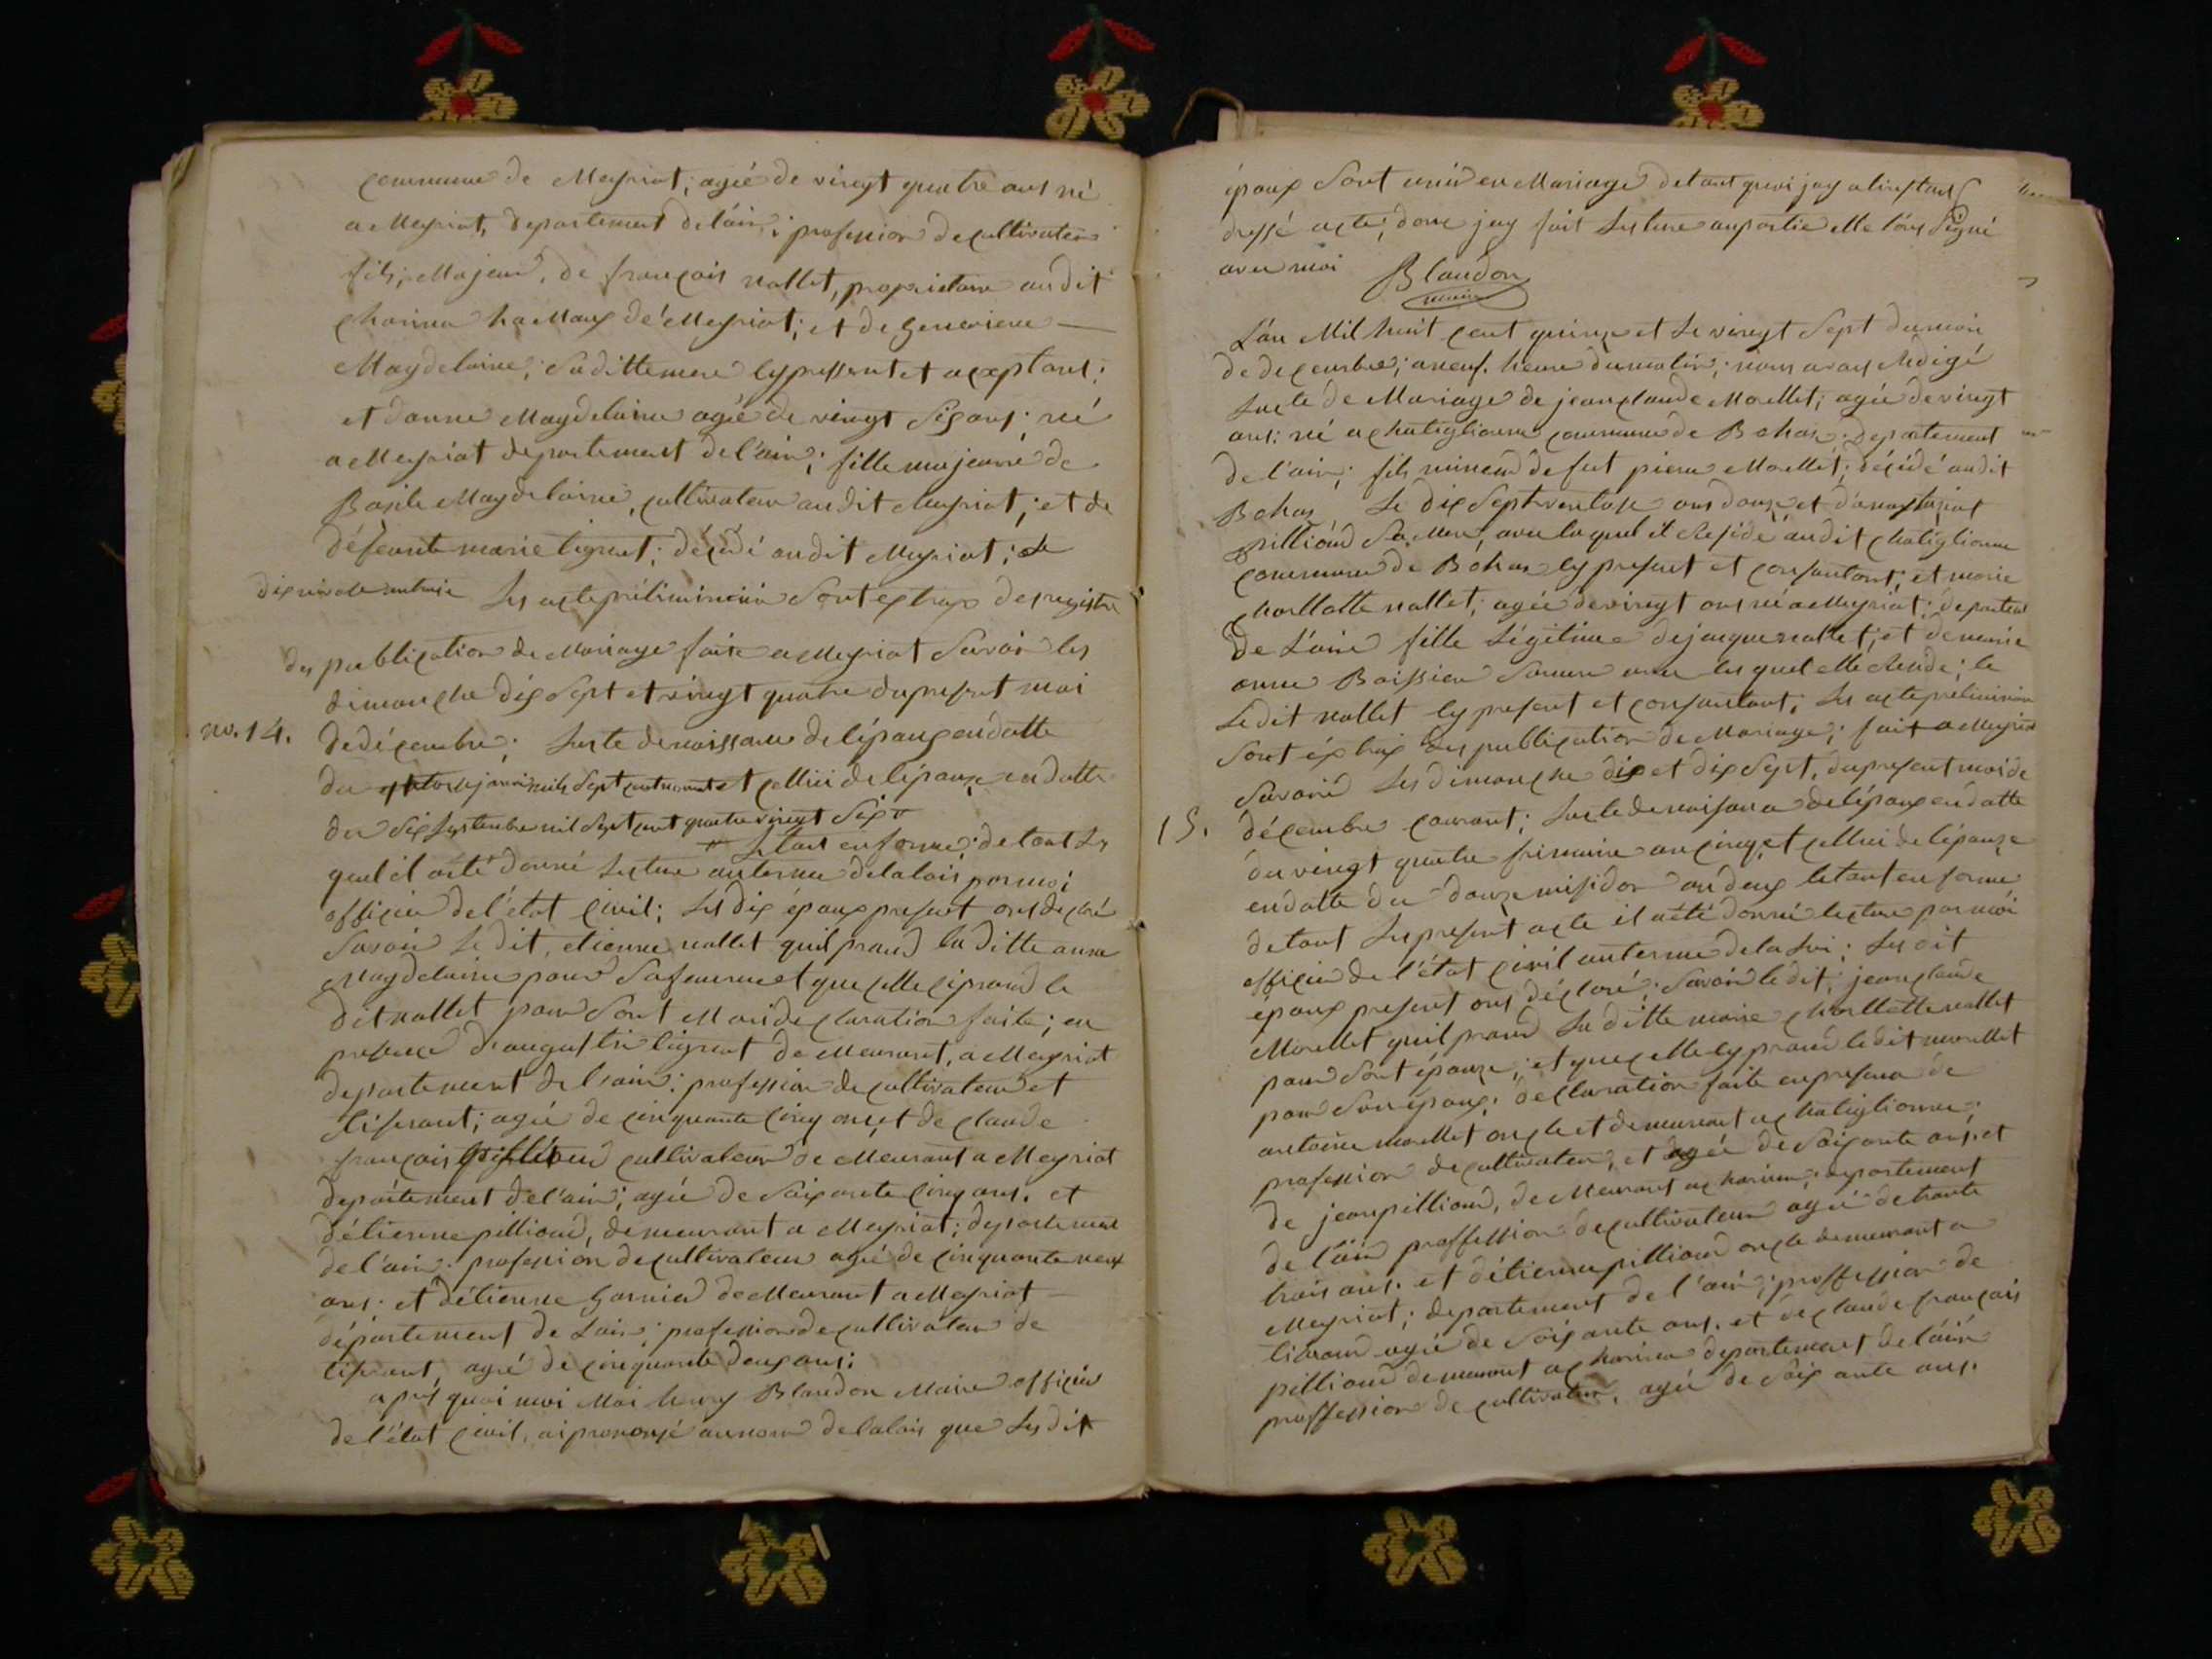 commune de Meyriat; agée de vingt quatre ans né
a Meyriat, departement de l'ain; profession de cultivateur
fils, Majeur, de françois nallet, propriétaire au dit
charinaz hameaux de Meyriat; et de genevieve
Magdelaine; saditte mere ly pressent et aceptant;
et d'anne Magdelaine agée de vingt six ans; né
a Meyriat departement de l'ain; fille majeure de
Basile Magdelaine, cultivateur au dit Meyriat; et de
défeante marie tignat; décédé au dit Meyriat; le
Les acte préliminaire sont extrax des registre
des publication de Mariage faite a Meyriat Savoir les
dimanche dix sept et vingt quatre du present moi
no. 14. de décembre; Lacte de naissance de lépoux en datte
du janvier mils sept cent et cellui de lépouze en datte
du six septembre mil sept cent quatre vingt six
le tout en forme; de tout les
quel il a été donné lecture au terme de la lois par moi
officier de l'état civil; Les dix époux present ons declaré
Savoir le dit, etienne nallet quil prand la ditte anne
Magdelaine pour sa femme et que celle ci prand le
dit nallet pour sont Mari declaration faite; en
presence d'augustin tignat de Meurant, a Meyriat
departement de l'ain; profession de cultivateur et
tiserant; agée de cinquante cinq ans, et de claude
françois pillioud cultivateur de Meurant a Meyriat
departement de l'ain; agée de soixante cinq ans. et
détienne pillioud, demeurant a Meyriat; departement
de l'ain; profession de cultivateur agée de cinquante neuf
ans; et détienne garnier de Meurant a Meyriat
département de Lain; profession de cultivateur de
tiserant, agée de cinquante deux ans;
apres quoi moi Moi henry Blandon Maire officier
de l'état civil, ai prononcé au nom de la lois que les dit
époux sont unis en Mariage de tant quoi jay a linstant
dressé acte, donc jay fait lecture au partie elle l'ons signé
avec moi Blandon
maire
L'an Mil huit cent quinze et le vingt sept du mois
de decembre; a neuf heure du matin; nous avons rédigé
Lacte de Mariage de jean claude Morellet; agée de vingt
ans; né a chatiglionne commune de Bohas; departement
de l'ain; fils mineur de feut pierre Morellet; décédé au dit
Bohas Le dix sept ventose ans douze et
pillioud sa Mere, avec laquel il reside au dit chatiglionne
commune de Bohas ly present et consantant; et marie
charllotte nallet; agée de vingt ans né a Meyriat; departement
de L'ain fille Légitime de jacque nallet; et de marie
anne Boissieu avec les quel elle reside; le
Ledit nallet ly present et consantant; Les acte preliminaire
sont éxtrax des publication de Mariage; fait a Meyriat
Savoire Les dimanche dix et dix sept, du present moi de
15. décembre courant; Lacte de naisance de lépoux en datte
du vingt quatre frimaire an cinq, et cellui de lépouze
en datte du douze misidor an deux le tout en forme
de tout les present acte il a été donné lecture par moi
officier de l'état civil au terme de la loi; Les dit
époux present ons déclaré; savoir le dit, jean claude
Morellet quil prand La ditte marie charllotte nallet
pour sont épouze; et que celle ly prand le dit morellet
pour son époux; declaration faite en presence de
antoine morellet oncle et demeurant a chatiglionne;
profession de cultivateur, et agée de soixante ans, et
de jean pillioud, de Meurant a charinaz; departement
de l'ain proffession de cultivateur agée de trante
trois ans. et d'étienne pillioud oncle demeurant a
Meyriat; departement de l'ain; proffession de
agée de soixante ans. et de claude françois
pillioud demeurant a charinaz departement de l'ain
proffession de cultivateur, agée de soixante ans.